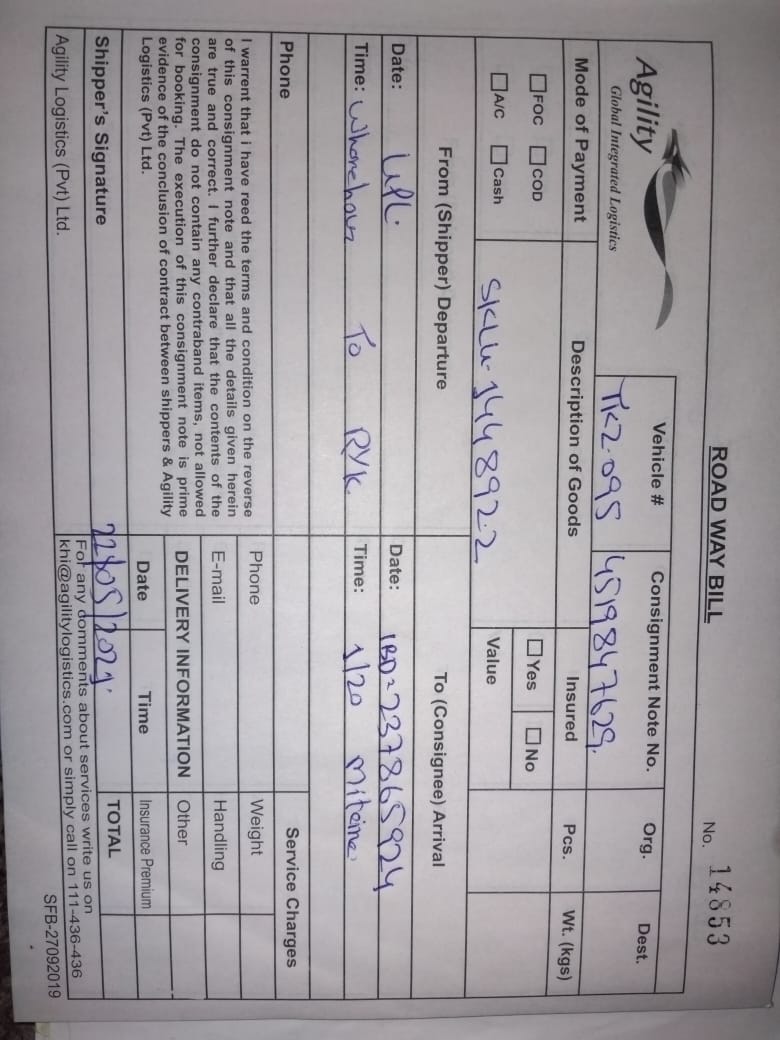 ROAD WAY BILL
No. 14853
Agility
Global Integrated Logistics
Vehicle #
Consignment Note No.
Org.
Dest.
TKZ-095
4519847629.
Mode of Payment
Description of Goods
Insured
Pcs.
Wt. (kgs)
FOC COD
Yes No
A/C Cash
Value
SKLU-1448922
From (Shipper) Departure
To (Consignee) Arrival
Date: UPL.
Date: IBD=237865924
Time: Wharehouz To RYK.
Time: 1/20
Phone
Service Charges
I warrent that i have reed the terms and condition on the reverse
of this consignment note and that all the details given herein
are true and correct. I further declare that the contents of the
consignment do not contain any contraband items, not allowed
for booking. The execution of this consignment note is prime
evidence of the conclusion of contract between shippers & Agility
Logistics (Pvt) Ltd.
Phone
Weight
E-mail
Handling
DELIVERY INFORMATION
Other
Date
Time
Insurance Premium
Shipper's Signature
22/05/2021.
TOTAL
Agility Logistics (Pvt) Ltd.
For any comments about services write us on
khi@agilitylogistics.com or simply call on 111-436-436
SFB-27092019